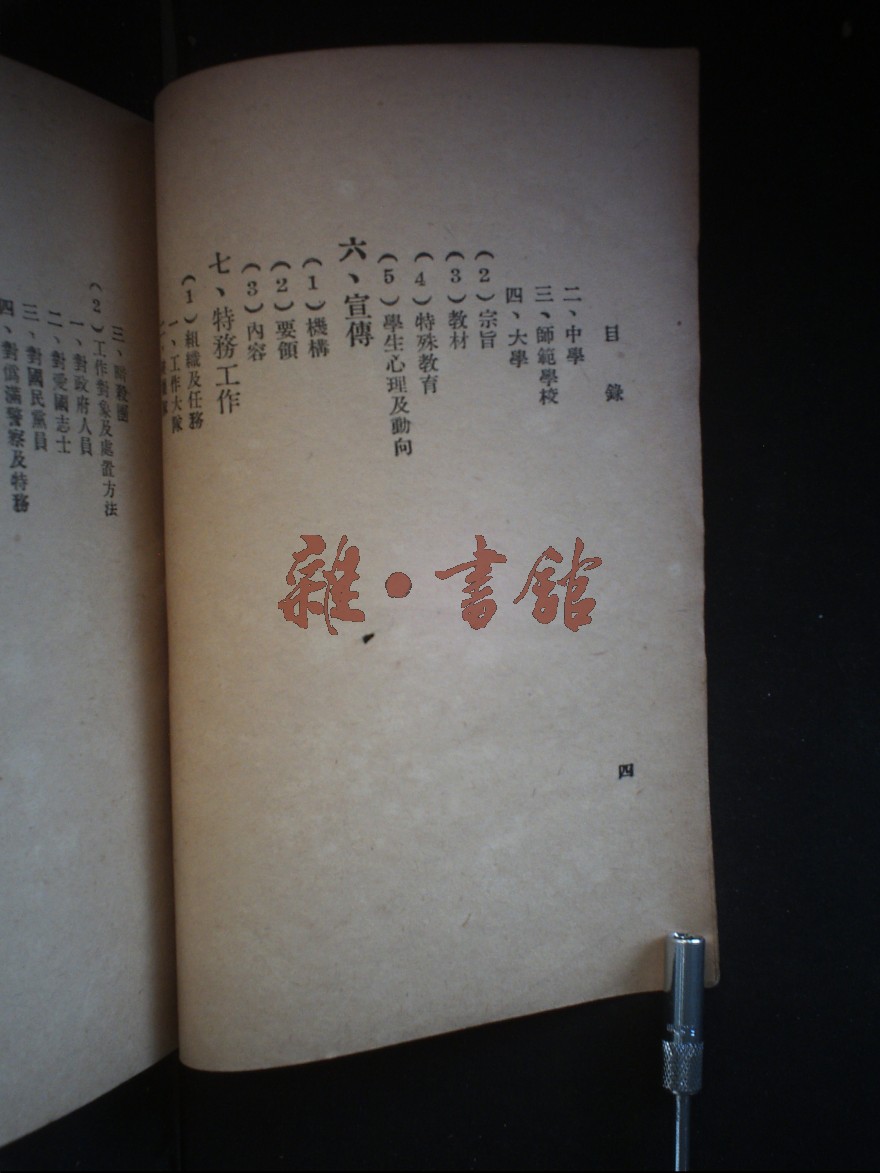 目錄
二、中學
三、師範學校
四、大學
(2)宗旨
(3)教材
(4)特殊教育
(5)學生心理及動向
六、宣傳
(1)機構
(2)要領
(3)內容
七、特務工作
(1)組織及任務
一、工作大隊
四
三、 團
(2)工作對象及處置方法
一、對政府人員
二、對愛國志士
三、對國民黨員
四、對偽滿警察及特務
雜·書館